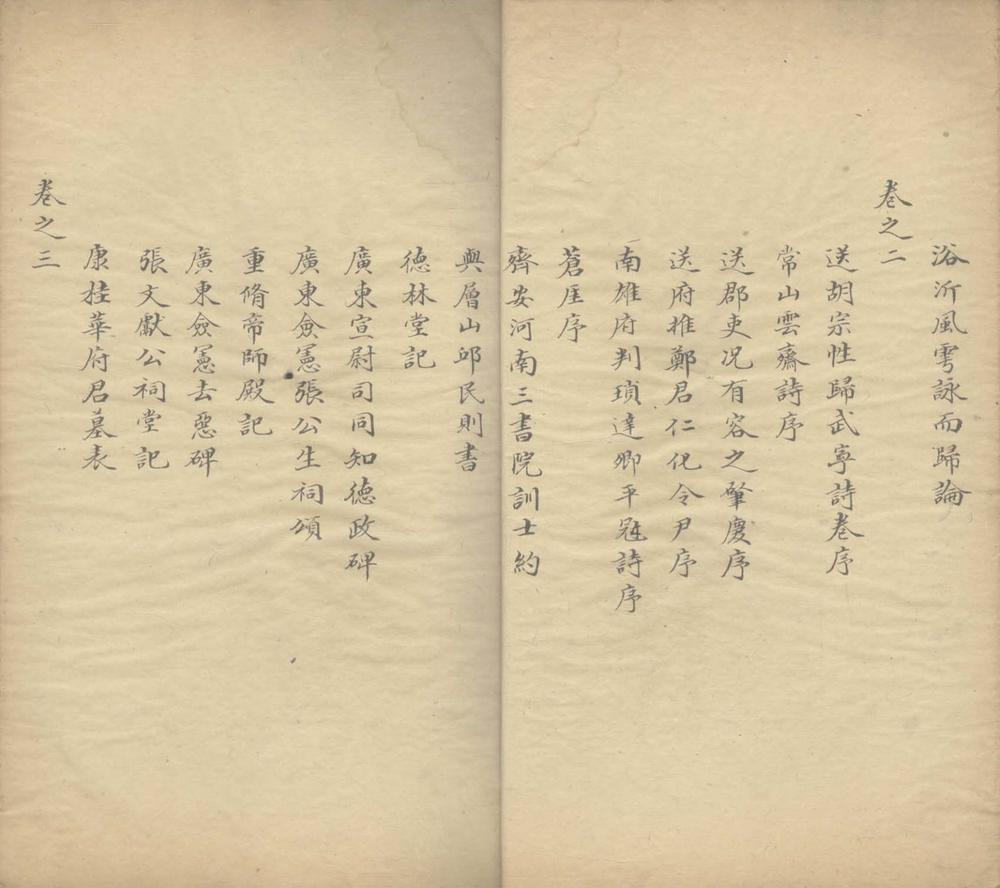 浴沂風雩詠而歸論
卷之二
送胡宗性歸武寧詩卷序
常山雲齋詩序
送郡吏况有容之肇慶序
送府推鄭君仁化令尹序
南雄府判瑣達卿平冦詩序
蒼厓序
齊安河南三書院訓士約
與層山邱民則書
德林堂記
廣東宣尉司同知德政碑
廣東僉憲張公生祠頌
重脩帝師殿記
廣東僉憲去惡碑
張文獻公祠堂記
康桂華府君墓表
卷之三